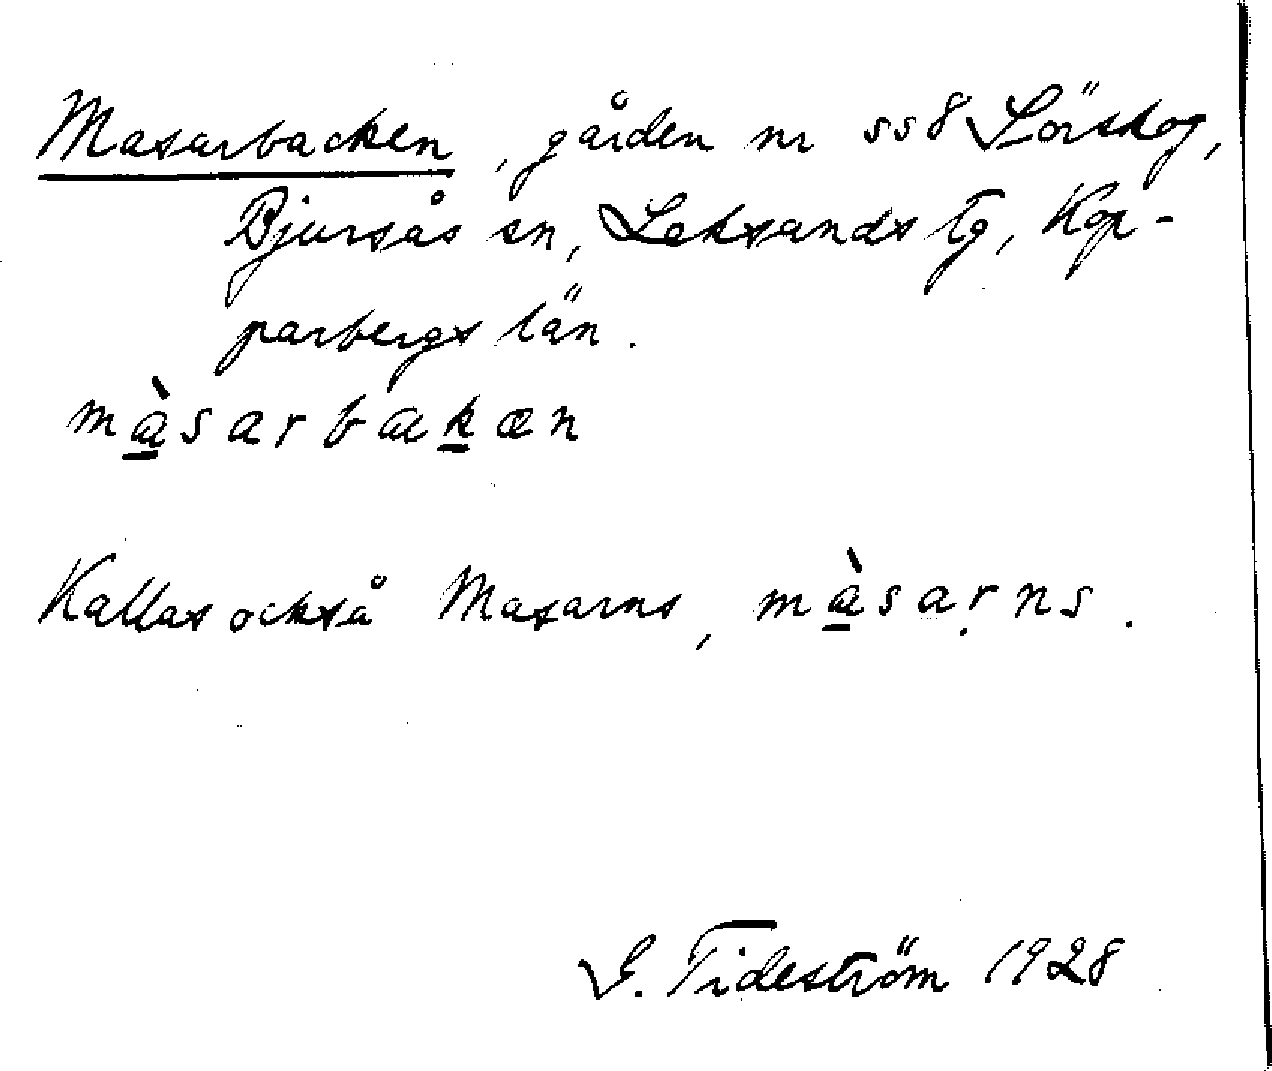 Masarbacken, gården nr 558 Lörskog,
Bjursås sn, Leksands tg, Kop-
parbergs län.
màsarbakæn
Kallas också Masarns, màsaṛns.
G. Tideström 1928